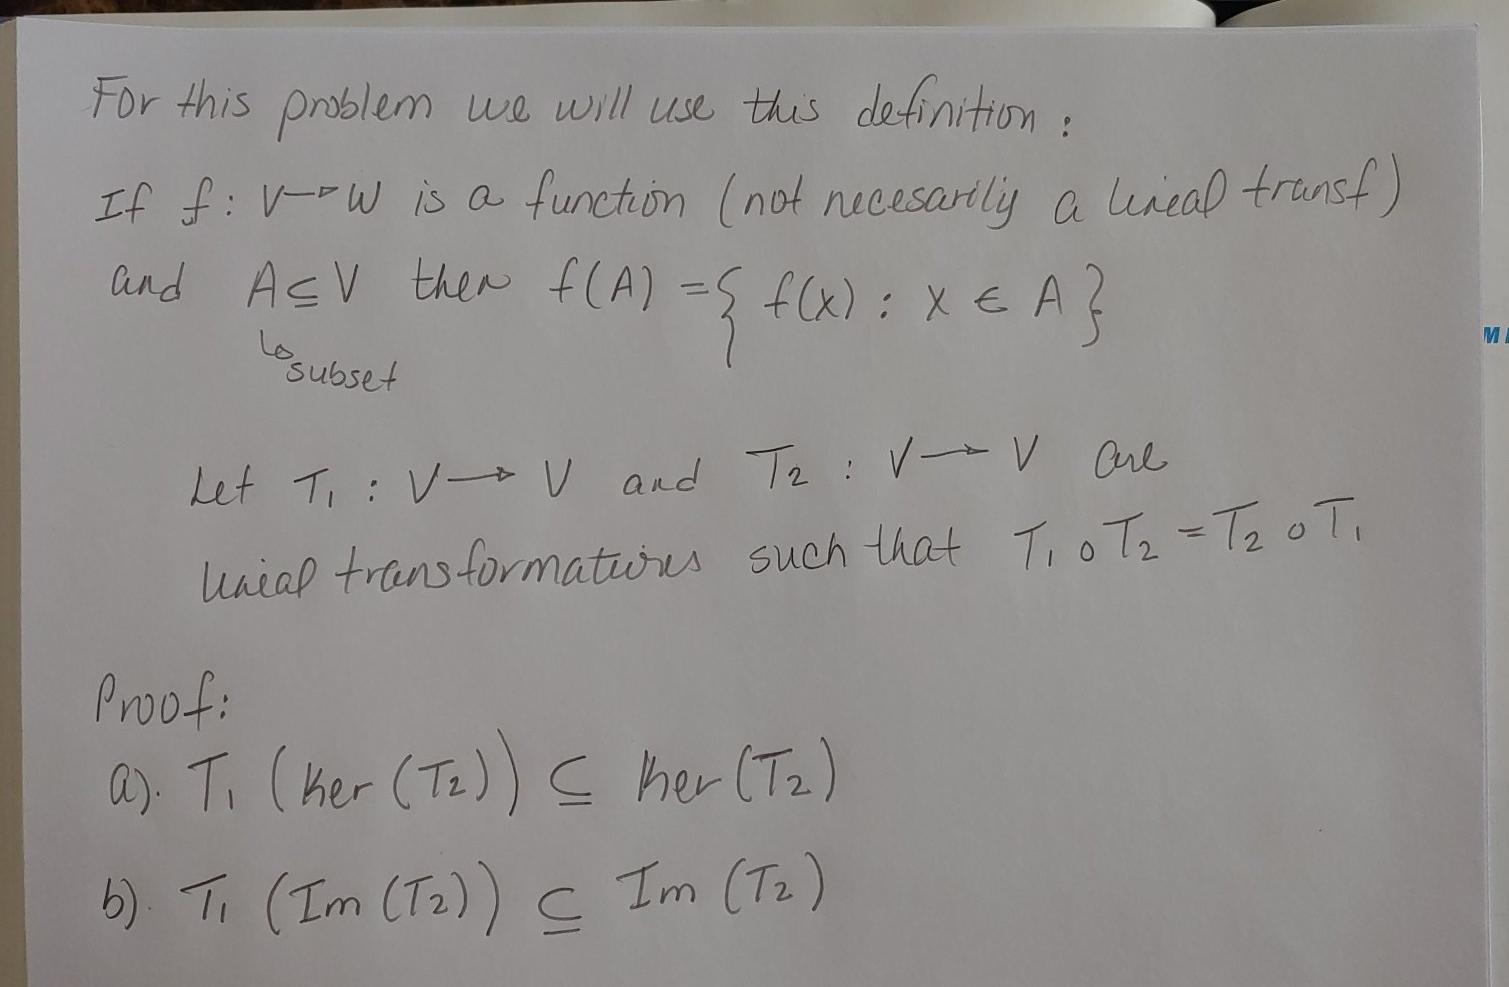 For this problem we will use this definition:
If f: V→W is a function (not necesarily a lineal transf)
and A⊆V then f(A) = { f(x) : x ∈ A }
↳ subset
Let T₁ : V → V and T₂ : V → V are
lineal transformations such that T₁ ∘ T₂ = T₂ ∘ T₁
Proof:
a). T₁ (ker (T₂)) ⊆ ker (T₂)
b). T₁ (Im (T₂)) ⊆ Im (T₂)